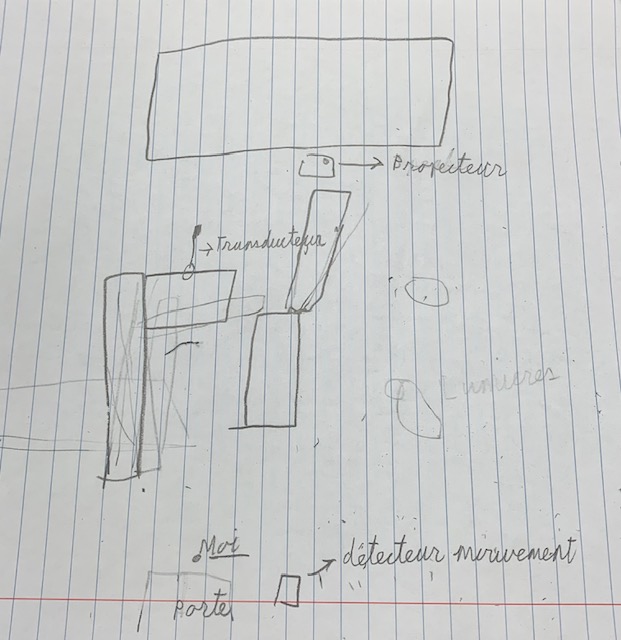 Projecteur
Transducteur
Lumières
Moi
détecteur mouvement
Porte